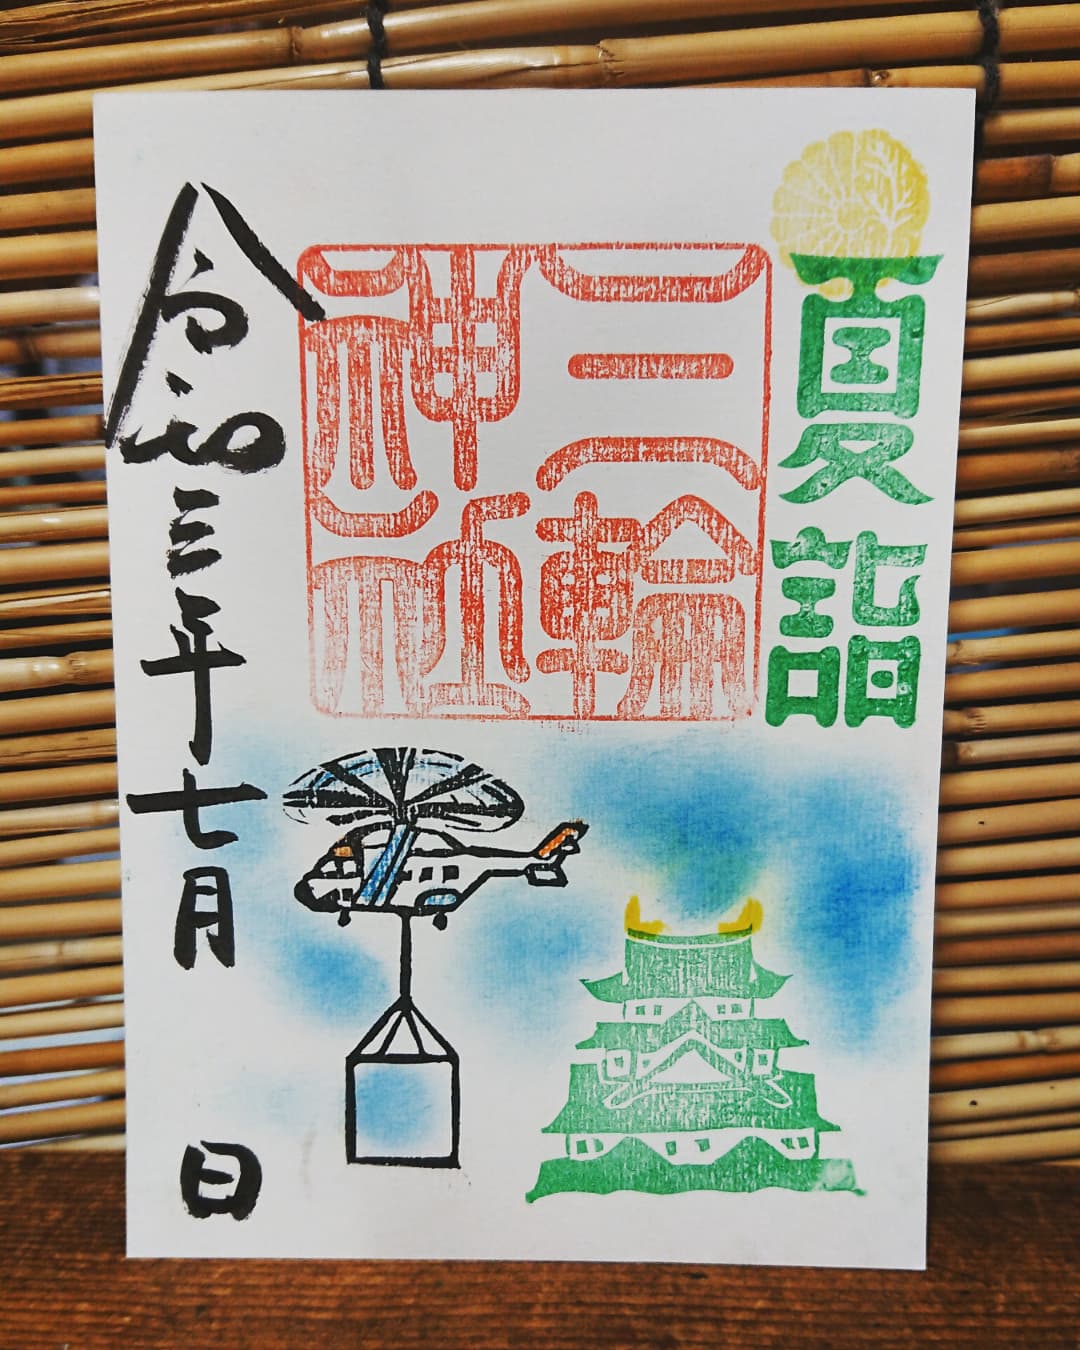 夏詣
三輪
神社
令和三年七月 日